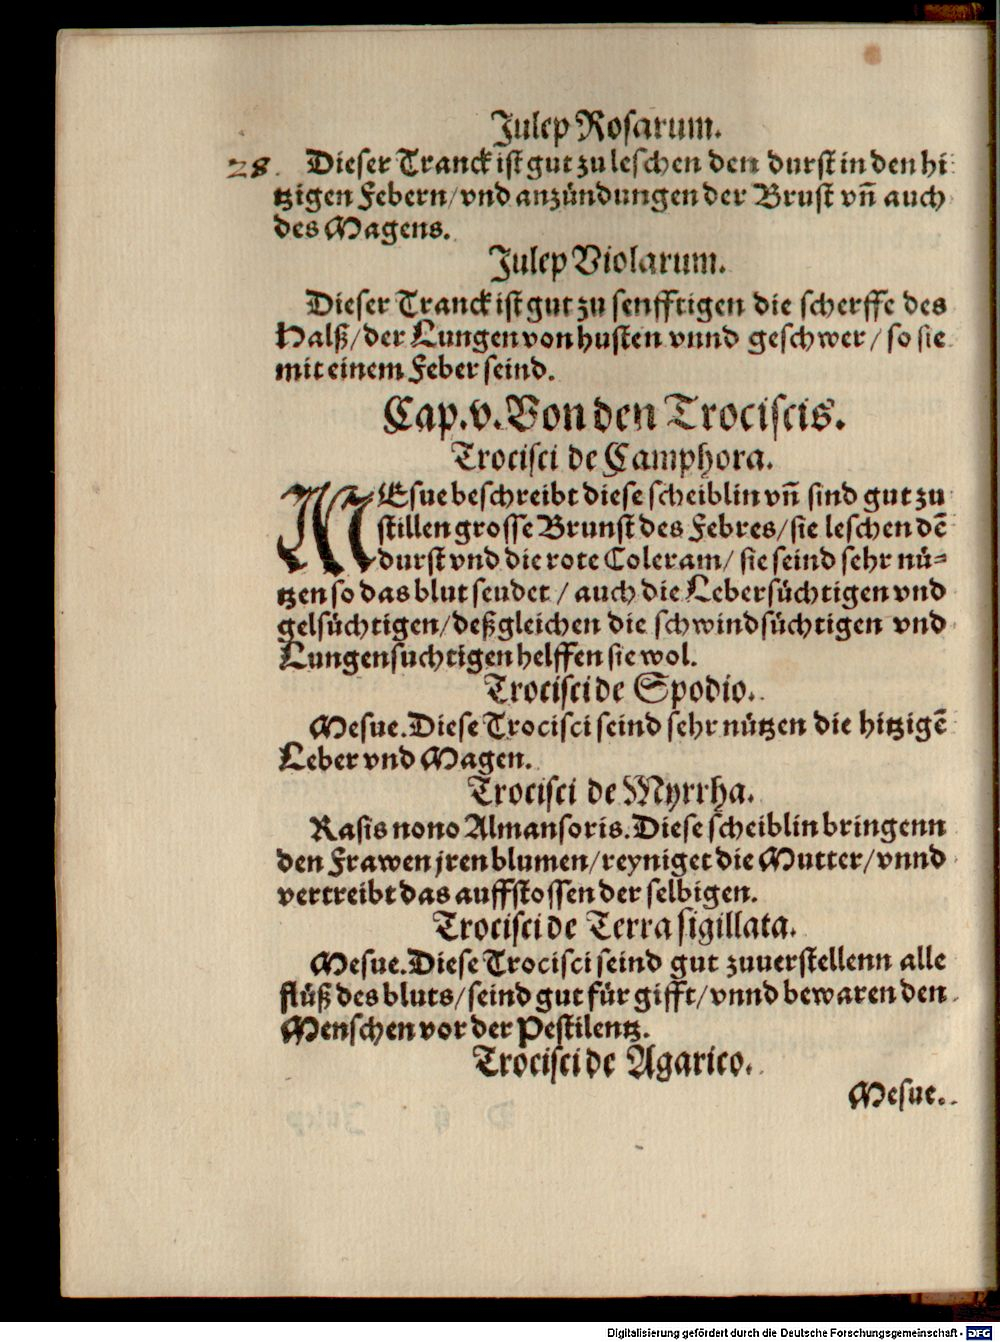 Julep Rosarum.
28. Dieser Tranck ist gut zu leschen den durst in den hi
tzigen Febern/ vnd anzündungen der Brust vñ auch
des Magens.
Julep Violarum.
Dieser Tranck ist gut zu senfftigen die scherffe des
Halß/ der Lungen von husten vnnd geschwer/ so sie
mit einem Feber seind.
Cap. v. Von den Trociscis.
Trocisci de Camphora.
MEsue beschreibt diese scheiblin vñ sind gut zu
stillen grosse Brunst des Febres/ sie leschen dē
durst vnd die rote Coleram/ sie seind sehr nü-
tzen so das blut seudet/ auch die Lebersüchtigen vnd
gelsüchtigen/ deßgleichen die schwindsüchtigen vnd
Lungensuchtigen helffen sie wol.
Trocisci de Spodio.
Mesue. Diese Trocisci seind sehr nützen die hitzigē
Leber vnd Magen.
Trocisci de Myrrha.
Rasis nono Almansoris. Diese scheiblin bringenn
den Frawen jren blumen/ reyniget die Mutter/ vnnd
vertreibt das auffstossen der selbigen.
Trocisci de Terra sigillata.
Mesue. Diese Trocisci seind gut zuuerstellenn alle
flüß des bluts/ seind gut für gifft/ vnnd bewaren den
Menschen vor der Pestilentz.
Trocisci de Agarico.
Mesue.
Digitalisierung gefördert durch die Deutsche Forschungsgemeinschaft - DFG